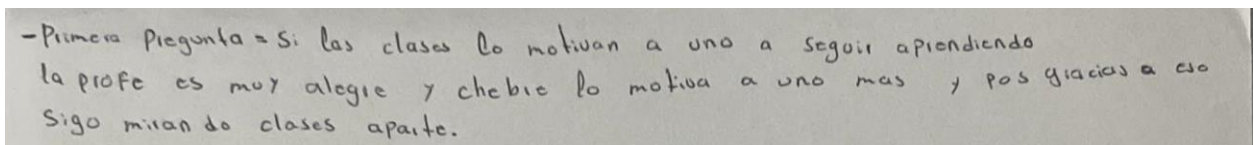 -Primera Pregunta = Si las clases lo motivan a uno a seguir aprendiendo
la profe es muy alegre y chebre lo motiva a uno mas y pos gracias a eso
Sigo mirando clases aparte.